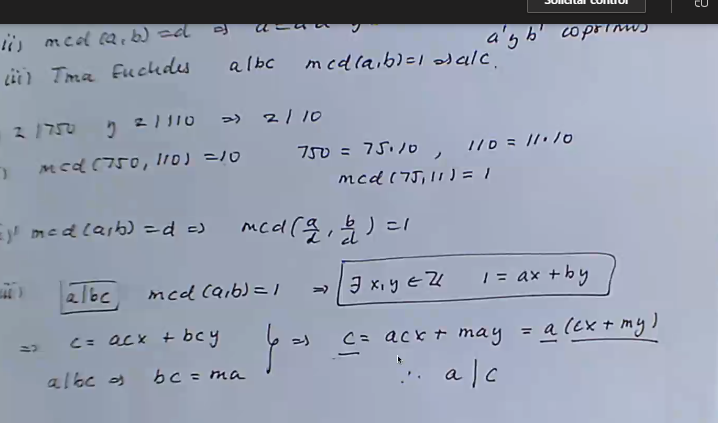 Solicitar control
ii) mcd(a,b)=d ⇒
a' y b' coprimos
iii) Tma Euclides a|bc mcd(a,b)=1 ⇒ a|c.
2|750 y 2|110 ⇒ 2|10
mcd(750,110)=10 750=75·10, 110=11·10
mcd(75,11)=1
mcd(a,b)=d ⇒ mcd(a/d, b/d)=1
iii) a|bc mcd(a,b)=1 ⇒ ∃ x,y ∈ ℤ 1=ax+by
⇒ c=acx+bcy } ⇒ c=acx+may=a(cx+my)
a|bc ⇒ bc=ma ∴ a|c